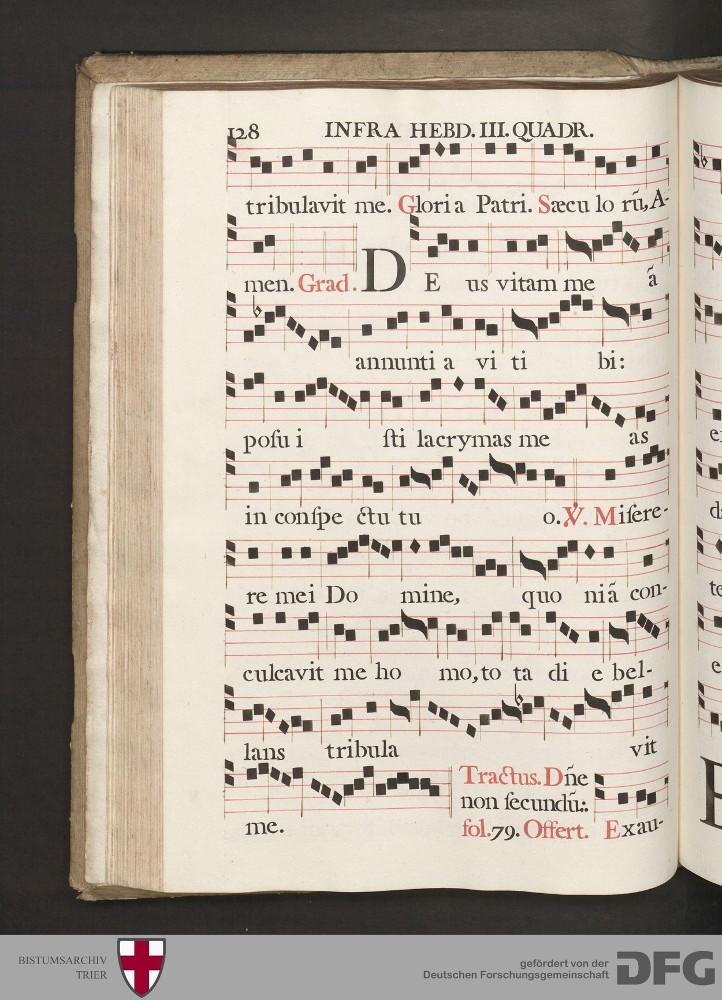 128 INFRA HEBD. III. QUADR.
tribulavit me. Gloria Patri. Sæcu lo rũ, A-
men. Grad. DE us vitam me ã
annunti a vi ti bi:
poſu i ſti lacrymas me as
in conſpe ctu tu o. ℣. Miſere-
re mei Do mine, quo niã con-
culcavit me ho mo, to ta di e bel-
lans tribula vit
me. Tractus. Dñe
non ſecundũ:.
fol. 79. Offert. Exau-
BISTUMSARCHIV
TRIER
gefördert von der
Deutschen Forschungsgemeinschaft
DFG